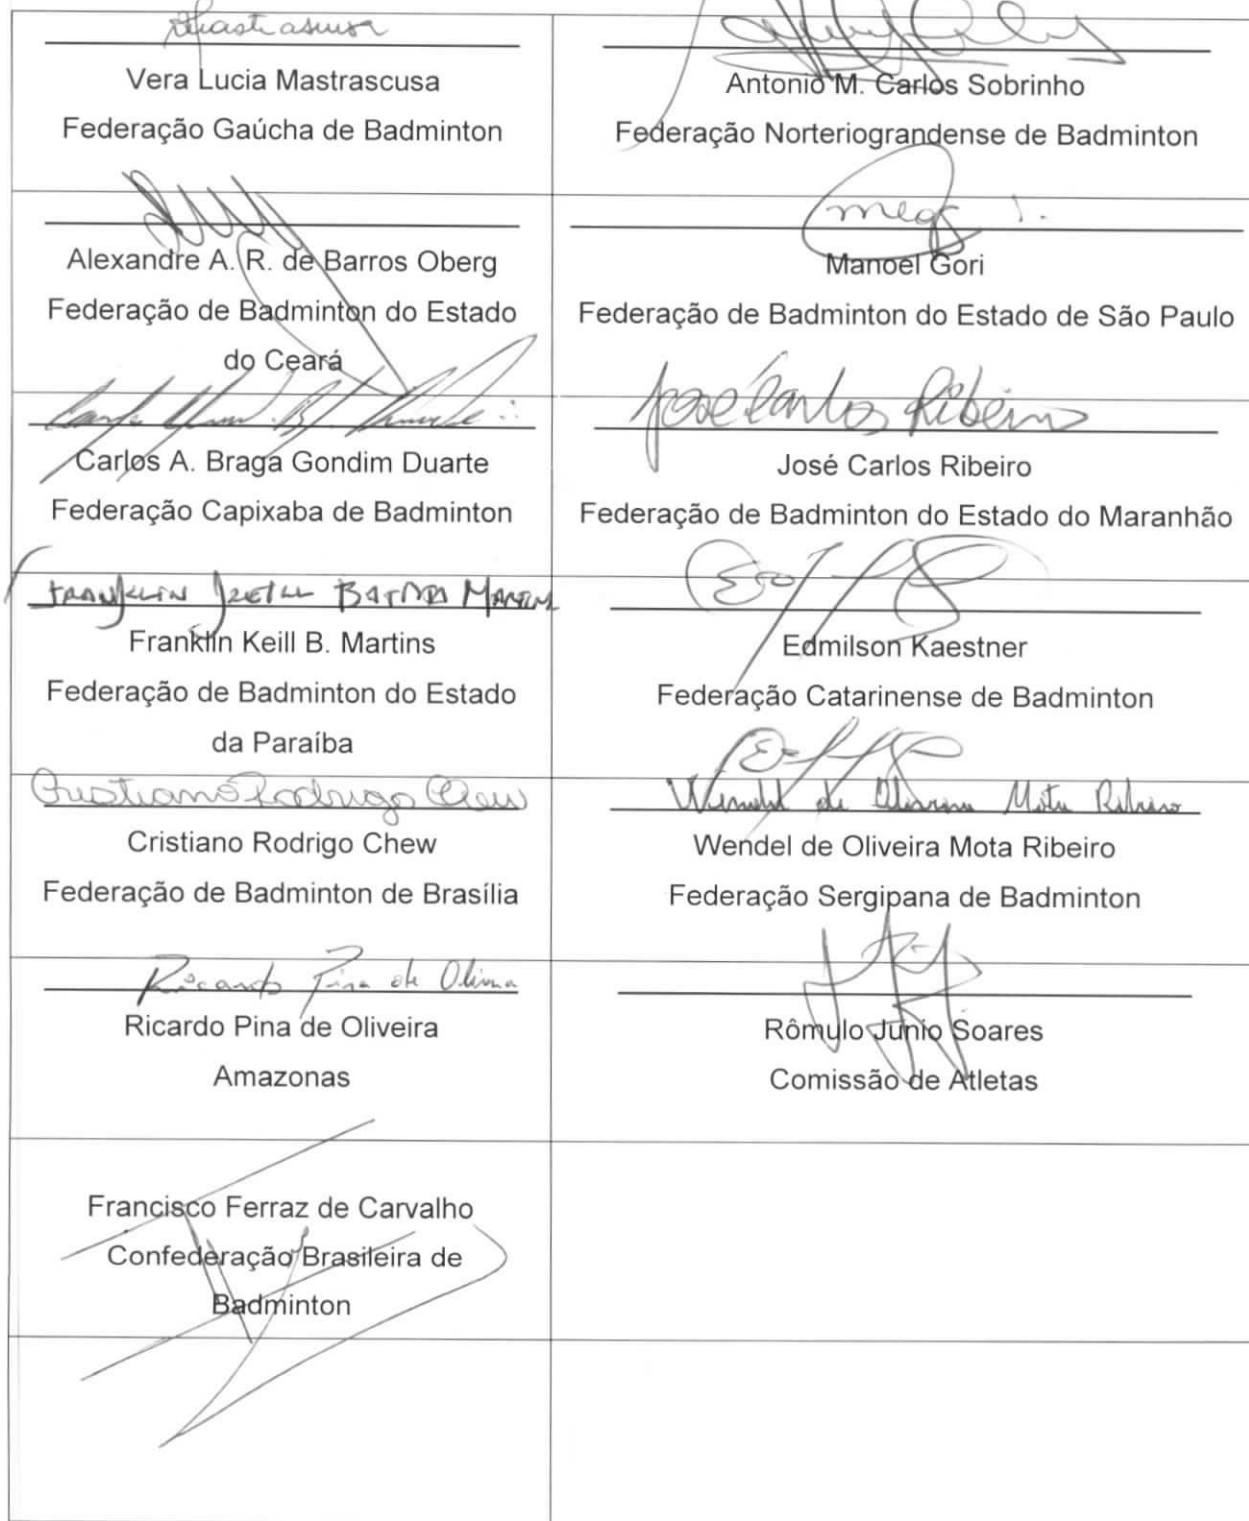 Vera Lucia Mastrascusa
Federação Gaúcha de Badminton
Antonio M. Carlos Sobrinho
Federação Norteriograndense de Badminton
Alexandre A. R. de Barros Oberg
Federação de Badminton do Estado
do Ceará
Manoel Gori
Federação de Badminton do Estado de São Paulo
Carlos A. Braga Gondim Duarte
Federação Capixaba de Badminton
José Carlos Ribeiro
José Carlos Ribeiro
Federação de Badminton do Estado do Maranhão
Franklin Keill B. Martins
Federação de Badminton do Estado
da Paraíba
Edmilson Kaestner
Federação Catarinense de Badminton
Cristiano Rodrigo Chew
Cristiano Rodrigo Chew
Federação de Badminton de Brasília
Wendel de Oliveira Mota Ribeiro
Wendel de Oliveira Mota Ribeiro
Federação Sergipana de Badminton
Ricardo Pina de Oliveira
Ricardo Pina de Oliveira
Amazonas
Rômulo Junio Soares
Comissão de Atletas
Francisco Ferraz de Carvalho
Confederação Brasileira de
Badminton